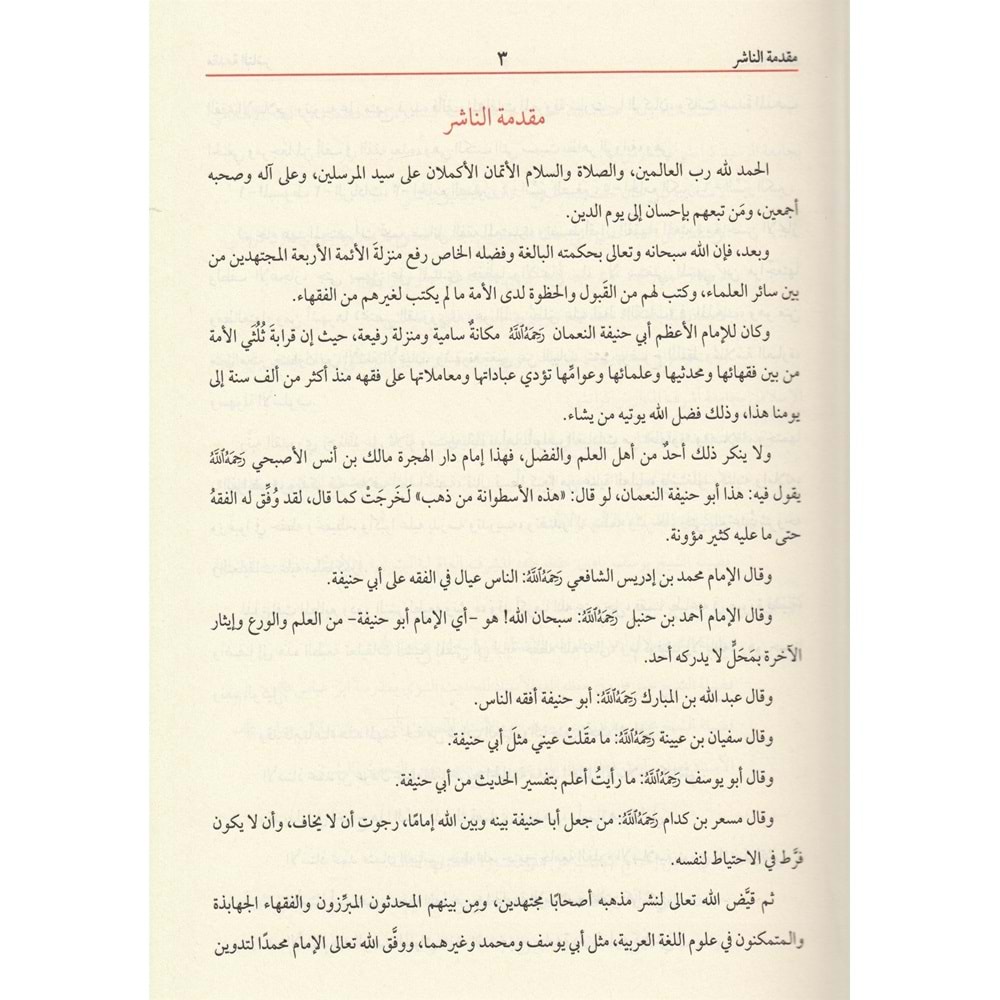 مقدمة الناشر ٣
مقدمة الناشر
الحمد لله رب العالمين، والصلاة والسلام الأتمان الأكملان على سيد المرسلين، وعلى آله وصحبه
أجمعين، ومَن تبعهم بإحسان إلى يوم الدين.
وبعد، فإن الله سبحانه وتعالى بحكمته البالغة وفضله الخاص رفع منزلةَ الأئمة الأربعة المجتهدين من
بين سائر العلماء، وكتب لهم من القَبول والحظوة لدى الأمة ما لم يكتب لغيرهم من الفقهاء.
وكان للإمام الأعظم أبي حنيفة النعمان رَحِمَهُ ٱللَّهُ مكانةٌ سامية ومنزلة رفيعة، حيث إن قرابةَ ثُلُثَي الأمة
من بين فقهائها ومحدثيها وعلمائها وعوامِّها تؤدي عباداتها ومعاملاتها على فقهه منذ أكثر من ألف سنة إلى
يومنا هذا، وذلك فضل الله يوتيه من يشاء.
ولا ينكر ذلك أحدٌ من أهل العلم والفضل، فهذا إمام دار الهجرة مالك بن أنس الأصبحي رَحِمَهُ ٱللَّهُ
يقول فيه: هذا أبو حنيفة النعمان، لو قال: «هذه الأسطوانة من ذهب» لَخرَجَتْ كما قال، لقد وُفِّق له الفقهُ
حتى ما عليه كثير مؤونة.
وقال الإمام محمد بن إدريس الشافعي رَحِمَهُ ٱللَّهُ: الناس عيال في الفقه على أبي حنيفة.
وقال الإمام أحمد بن حنبل رَحِمَهُ ٱللَّهُ: سبحان الله! هو -أي الإمام أبو حنيفة- من العلم والورع وإيثار
الآخرة بمَحَلٍّ لا يدركه أحد.
وقال عبد الله بن المبارك رَحِمَهُ ٱللَّهُ: أبو حنيفة أفقه الناس.
وقال سفيان بن عيينة رَحِمَهُ ٱللَّهُ: ما مقَلتْ عيني مثلَ أبي حنيفة.
وقال أبو يوسف رَحِمَهُ ٱللَّهُ: ما رأيتُ أعلم بتفسير الحديث من أبي حنيفة.
وقال مسعر بن كدام رَحِمَهُ ٱللَّهُ: من جعل أبا حنيفة بينه وبين الله إمامًا، رجوت أن لا يخاف، وأن لا يكون
فرَّط في الاحتياط لنفسه.
ثم قيَّض الله تعالى لنشر مذهبه أصحابًا مجتهدين، ومِن بينهم المحدثون المبرِّزون والفقهاء الجهابذة
والمتمكنون في علوم اللغة العربية، مثل أبي يوسف ومحمد وغيرهما، ووفَّق الله تعالى الإمام محمدًا لتدوين